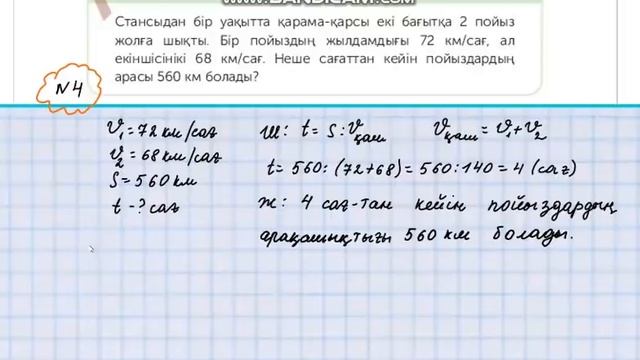 WWW.BANDICAM.COM
Стансыдан бір уақытта қарама-қарсы екі бағытқа 2 пойыз
жолға шықты. Бір пойыздың жылдамдығы 72 км/сағ, ал
екіншісінікі 68 км/сағ. Неше сағаттан кейін пойыздардың
арасы 560 км болады?
№4
V₁ = 72 км/сағ
V₂ = 68 км/сағ
S = 560 км
t - ? сағ
Ш: t = S : Vқаш Vқаш = V₁ + V₂
t = 560 : (72+68) = 560 : 140 = 4 (сағ)
Ж: 4 сағ-тан кейін пойыздардың
арақашықтығы 560 км болады.